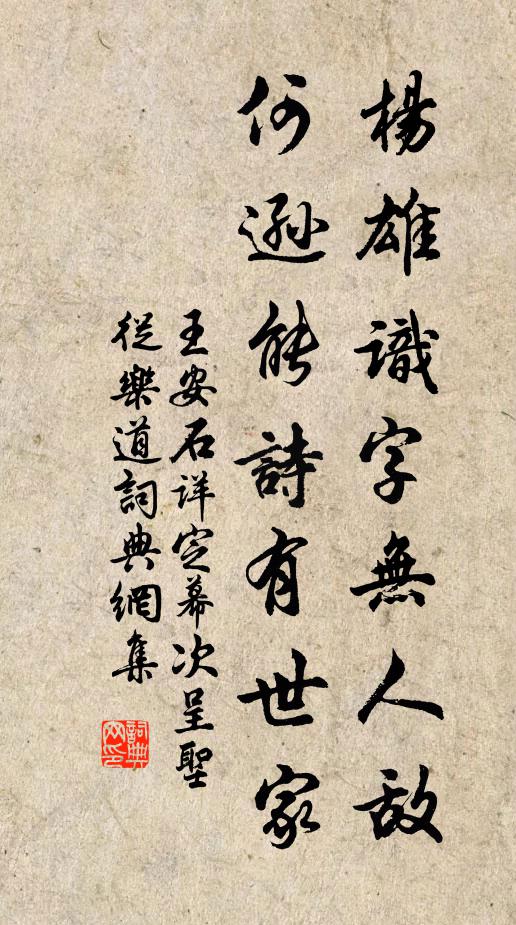 楊雄識字無人敵
何遜能詩有世家
王安石详定幕次呈聖
從樂道詞典網集
詞典
网印